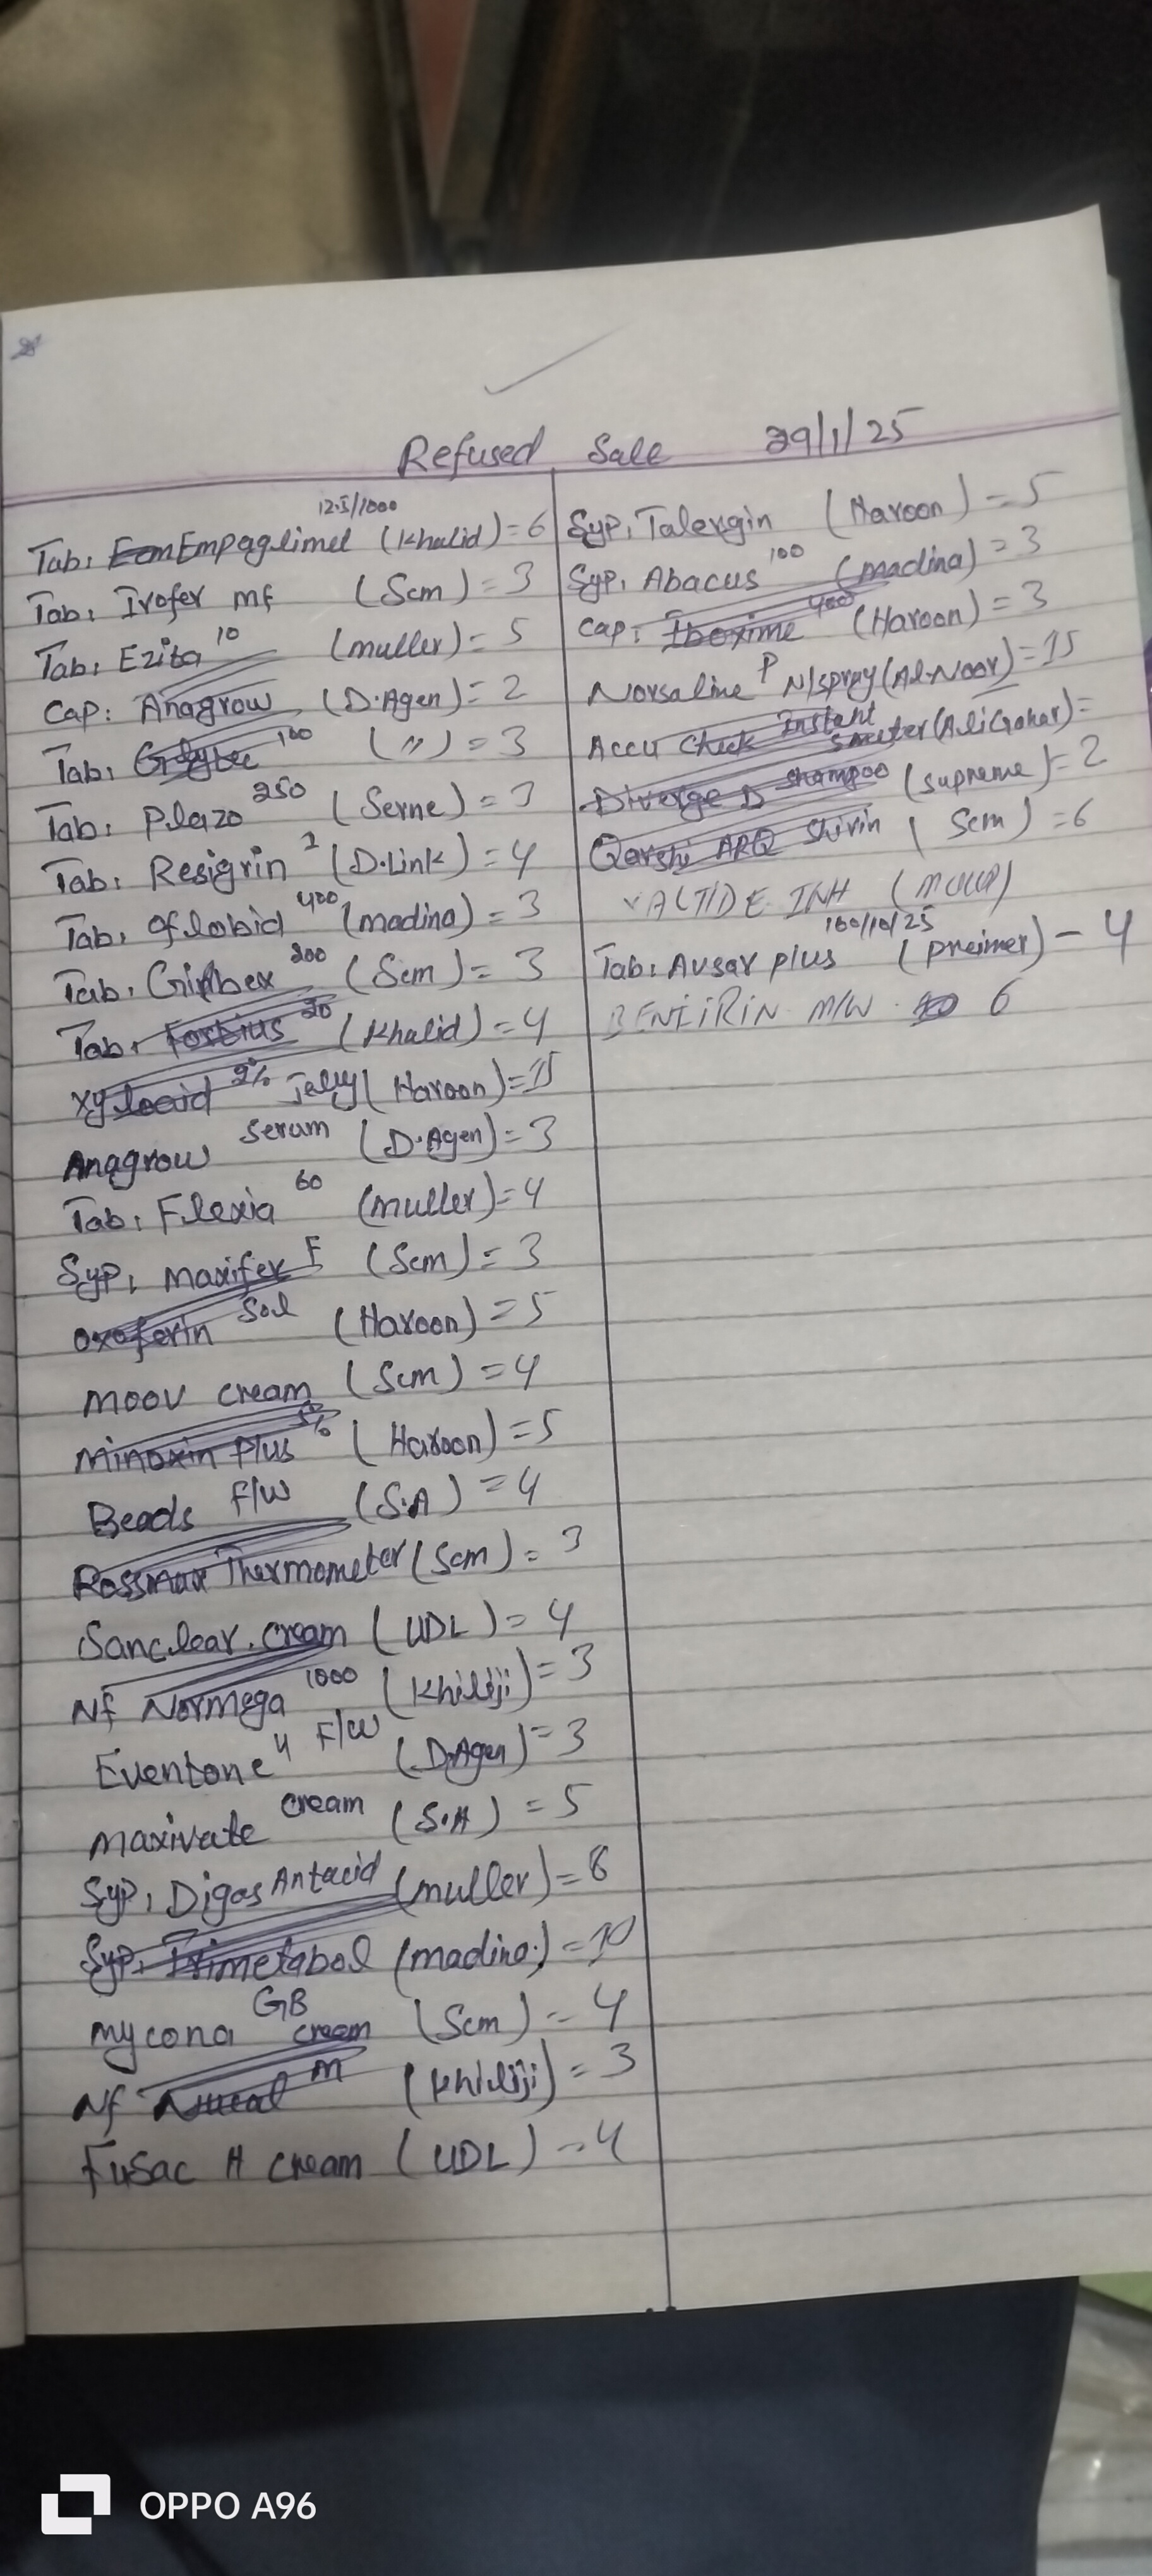 Refused Sale 29/1/25
12.5/1000
Tab: Empaglimet (Khalid) = 6
Tab: Irofer mf (Scm) = 3
Tab: Ezita 10 (muller) = 5
Cap: Anagrow (D.Agen) = 2
Tab: 100 (") = 3
Tab: Plazo 250 (Serne) = 3
Tab: Resigrin 2 (D.Link) = 4
Tab: Oflobid 400 (madina) = 3
Tab: 200 (Scm) = 3
Tab: 20 (Khalid) = 4
2% Jelly (Haroon) = 15
Anagrow Serum (D.Agen) = 3
Tab: Flexia 60 (muller) = 4
Syp: Maxifer F (Scm) = 3
Oxoferin Sol (Haroon) = 5
Moov cream (Scm) = 4
Minoxin Plus 5% (Haroon) = 5
Beads F/W (S.A) = 4
Rossmax Thermometer (Scm) = 3
Sanclear cream (UDL) = 4
Nf Normega 1000 (Khiliji) = 3
Eventone 4 F/W (D.Agen) = 3
Maxivate cream (S.A) = 5
Syp: Digas Antacid (muller) = 8
Syp: Trimetabol (madina) = 10
Mycona GB cream (Scm) = 4
Nf M (Khiliji) = 3
Fusac H cream (UDL) = 4
Syp: Talergin (Haroon) = 5
Syp: Abacus 100 (madina) = 3
Cap: 400 (Haroon) = 3
Norsaline P N/spray (Al-Noor) = 15
Accu Check Instant (Ali Gohar) =
Diverge D shampoo (supreme) = 2
Qarshi ARQ Shirin (Scm) = 6
INH
100/10/25
Tab: Avsar plus (preimer) - 4
M/W 6
OPPO A96